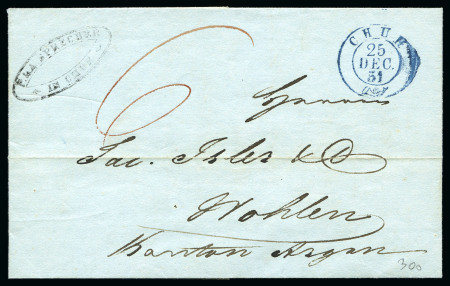 IN CHUR
CHUR
25
DEC.
51
6
Herren
Jac. Isler & Co
Wohlen
Kanton Argau
300